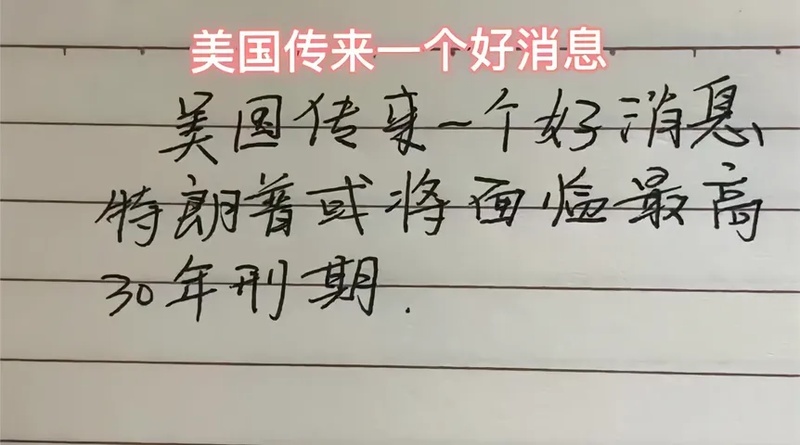 美国传来一个好消息
美国传来一个好消息、
特朗普或将面临最高
30年刑期.